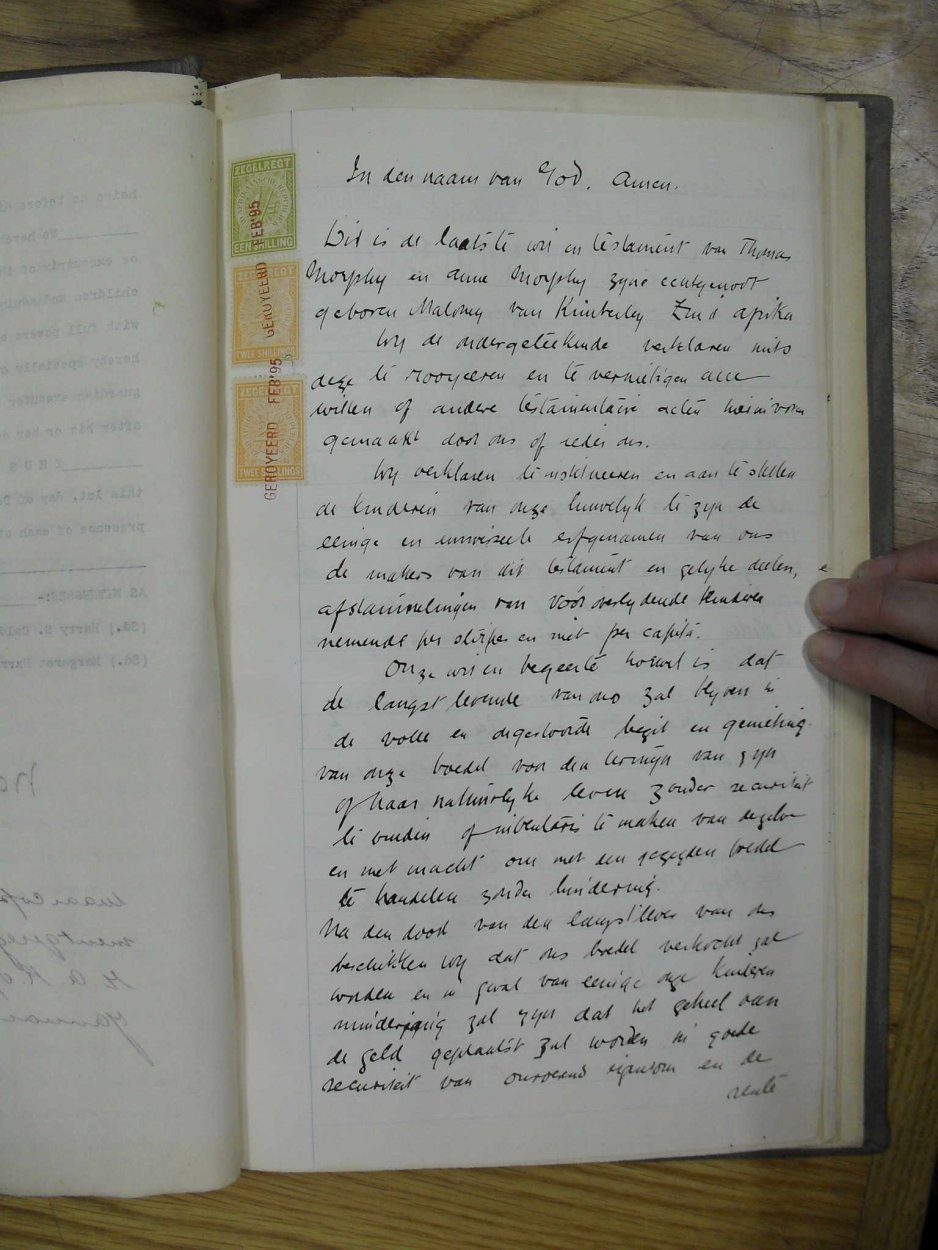 In den naam van God. Amen.
Dit is de laatste wil en testament van Thomas
Morphy en Anne Morphy zyne echtgenoot
geboren Maloney van Kimberley Zuid Afrika
Wy de ondergeteekende verklaren mits
deze te rooyeeren en te vernietigen alle
willen of andere testamentaire acten hiervoren
gemaakt door ons of ieder ons.
Wy verklaren te institueeren en aan te stellen
de kinderen van onze huwelyk te zyn de
eenige en universeele erfgenamen van ons
de makers van dit testament en gelyke deelen,
afstammelingen van vóóroverlydende kinderen
nemende per stirpes en niet per capita.
Onze wil en begeerte hoewel is dat
de langst levende van ons zal blyven in
de volle en ongestoorde bezit en genieting
van onze boedel voor den termyn van zyn
of haar natuurlyke leven zonder securiteit
te vinden of inventaris te maken van dezelve
en met macht om met den gezegden boedel
te handelen zonder hindering.
Na den dood van den langstlever van ons
beschikken wy dat ons boedel verkocht zal
worden en in geval van eenige onze kinderen
minderjarig zal zyn dat het geheel van
de geld geplaatst zal worden in goede
securiteit van onroerend eigendom en de
rente
ZEGELREGT
EEN SHILLING
ZEGELREGT
TWEE SHILLINGS
ZEGELREGT
TWEE SHILLINGS
GEROYEERD FEB'95
GEROYEERD FEB'95
heirs as before
We here
or executrix of
children and
with full powers
hereby specially
guardian
after his or her
THUS
this 1st. day of
presence of each
AS WITNESSES:-
(Sd.) Harry S.
(Sd.) Margaret